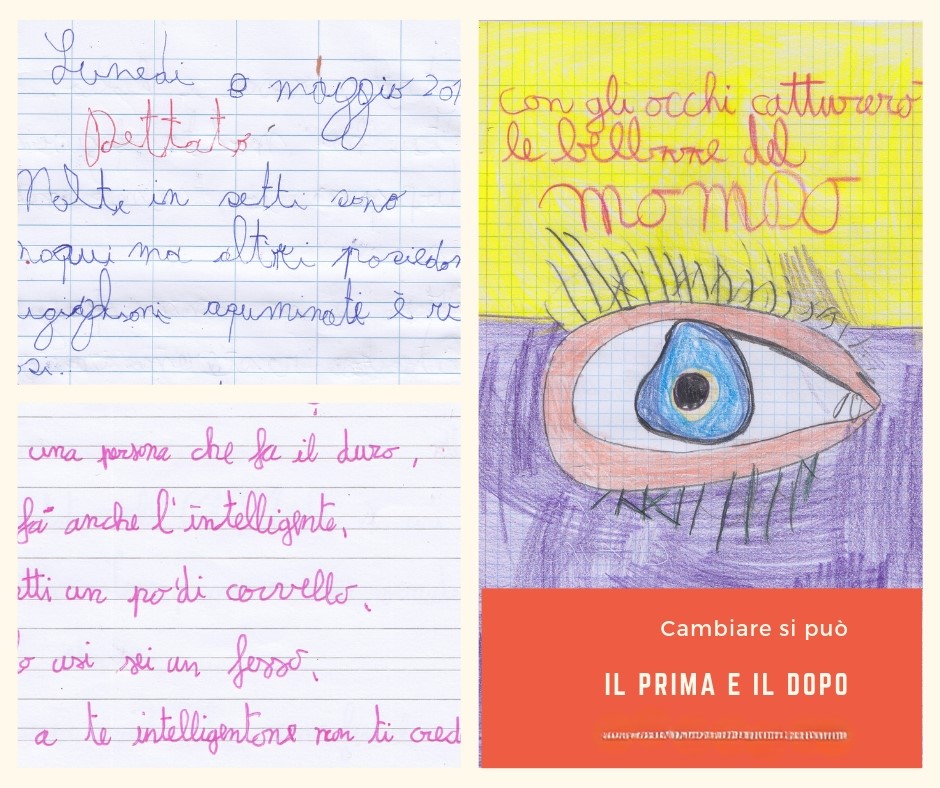 Lunedì 8 maggio 201
Dettato
Molti in setti sono
noqui ma altri posiedon
igigphioni aquminati è ve
osi.
una persona che fa il duro,
fa anche l'intelligente,
etti un po'di corvello,
o usi sei un fesso,
a te intelligentone non ti cred
con gli occhi catturerò
le bellezze del
MOMDO
Cambiare si può
IL PRIMA E IL DOPO